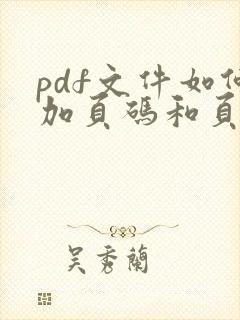 pdf文件如何
加頁碼和頁
吳秀蘭